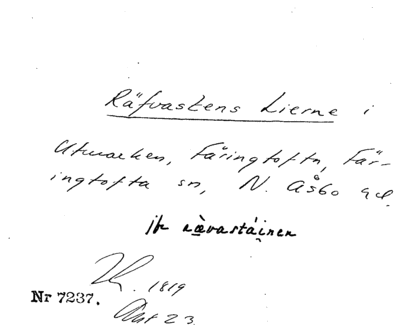 Räfvastens Lierne i
Utmarken, Färingtofta, Fär-
ingtofta sn, N. Åsbo hd.
jfr rävastáinen
1819
Nr 7237.
Akt 23.